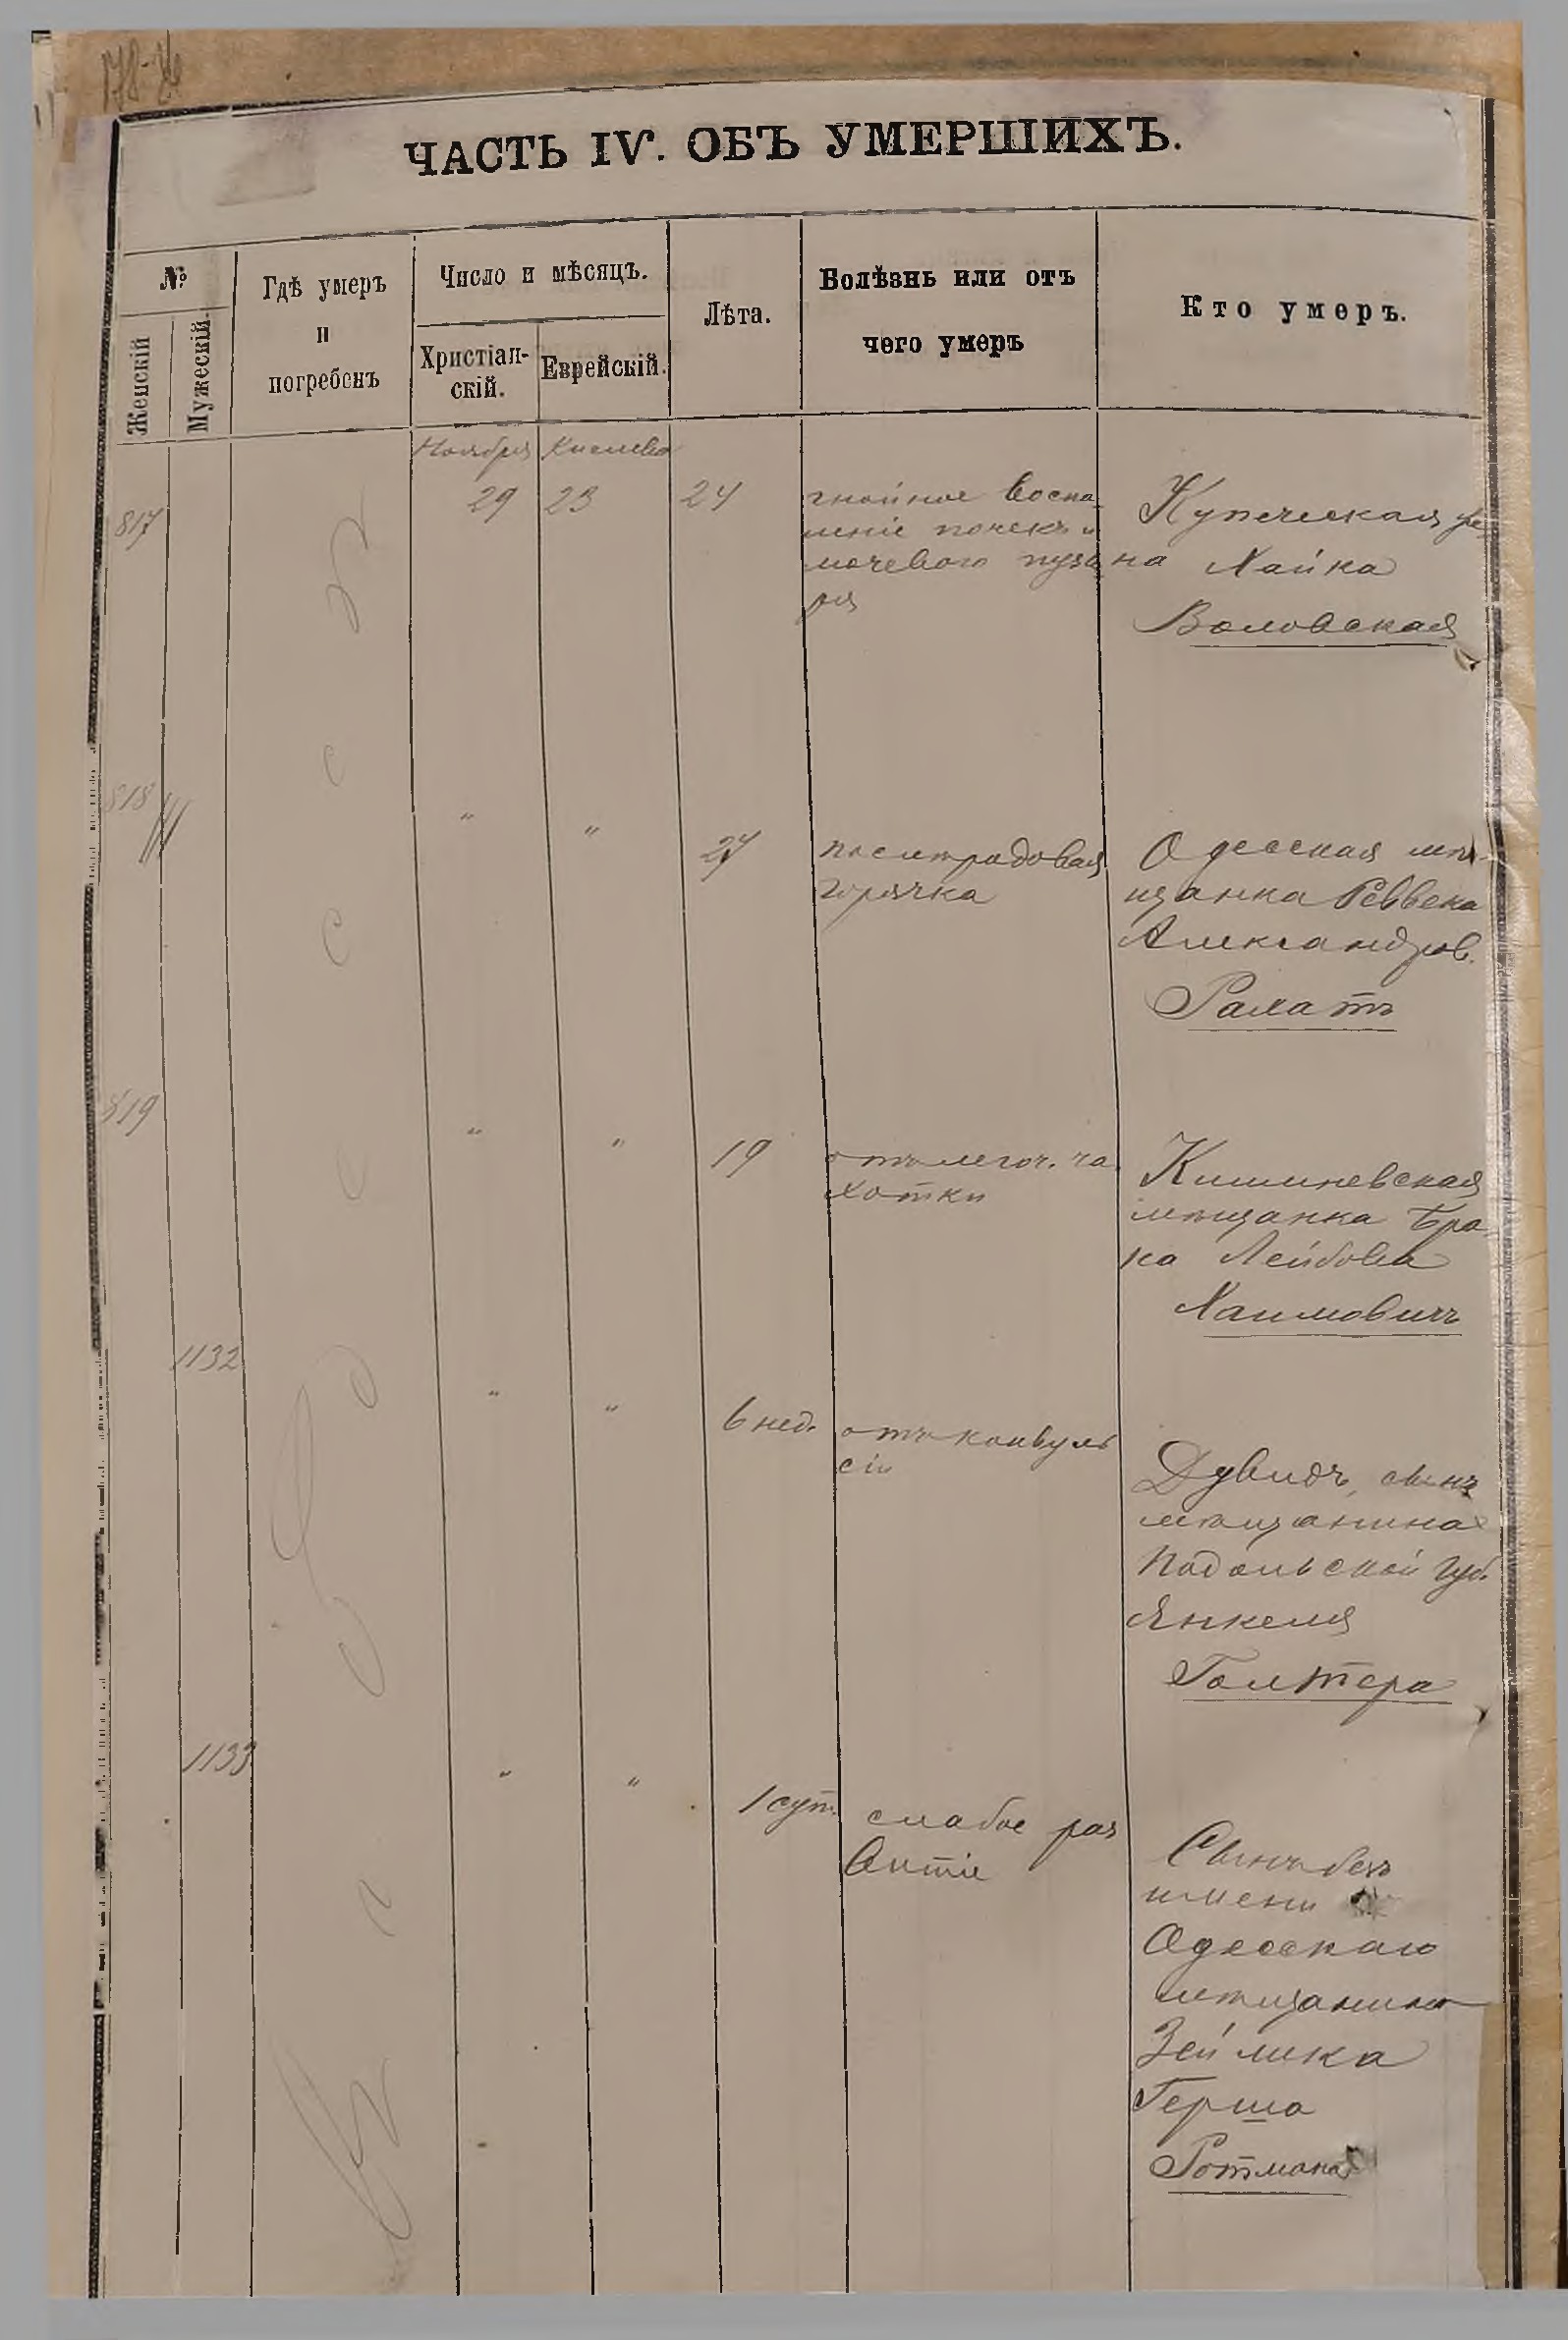 ЧАСТЬ IV. ОБЪ УМЕРШИХЪ.
№
Женскій
Мужескій.
Гдѣ умеръ
и
погребенъ
Число и мѣсяцъ.
Христіан-
скій.
Еврейскій.
Лѣта.
Болѣзнь или отъ
чего умеръ
Кто умеръ.
Ноября
Кислева
817
29
23
24
гнойное воспа
леніе почекъ и
мочевого пузы
ря
Купеческая же
на Хайка
Воловская
818
"
"
послѣродовая
горячка
Одесская мѣ-
щанка Ревека
Александров.
819
"
"
19
отъ легоч. ча
хотки
Кишиневская
мѣщанка Бра
ха Лейбова
Хаимовичъ
1132
"
"
6 нед.
отъ конвуль
сіи
Дувидъ, сынъ
мѣщанина
Подольской губ.
Янкеля
Голтера
1133
"
"
1 сут.
слабое раз
витіе
Сынъ безъ
имени
Одесскаго
мѣщанина
Зейлика
Герша
Ротмана
въ Одессѣ